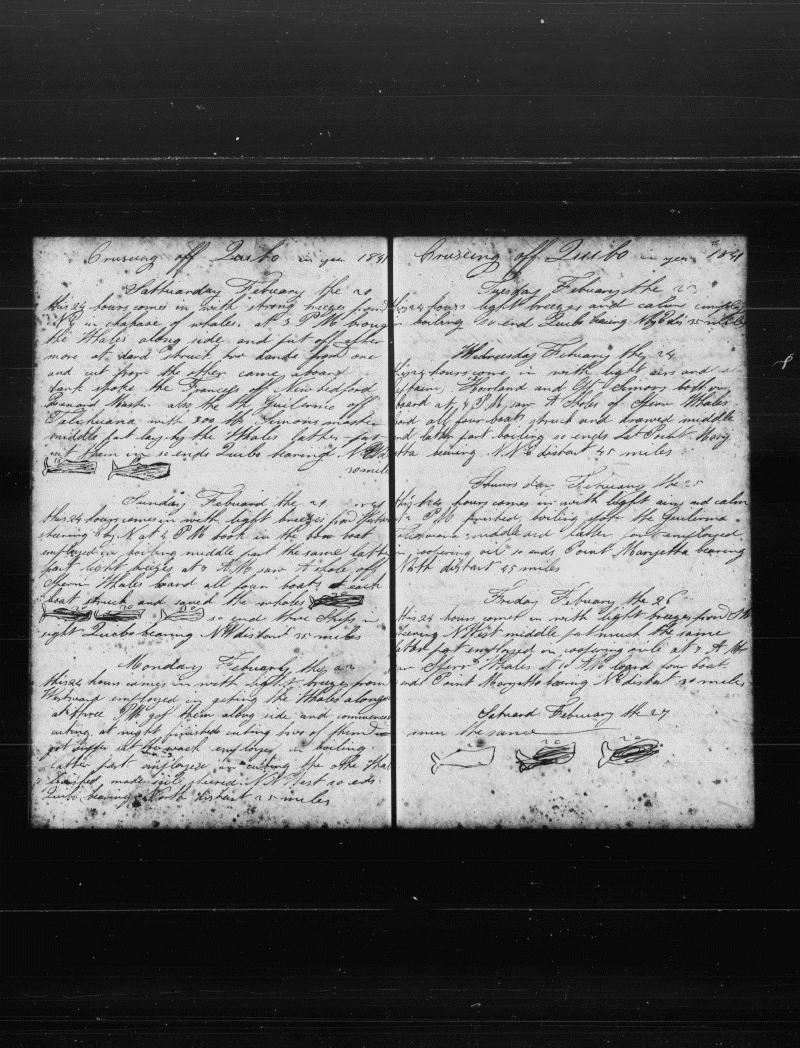 Cruseing off Quibo in year 1841
Satthuarday Febuary the 20
this 24 hours comes in with strong breezes from
N E in chapase of whales at 3 P M broug
the Whales along side and fit off after
more at dard struck two lands from one
and cut from the other came aboard
dark spoke the Frances off New Bedford
also the the Guilermo off
Talchuana with 200 bb Simons master
middle part lay by the Whales lather part
cut them in so ends Quibo bearing N
30 miles
Sunday Febuard the 21
this 24 hours comes in with light breezes from
stearing by N at 4 P M took in the bow boat
employed in boiling middle part the same latter
part light breezes at 7 A M saw A shole off
Sperm Whales loard all four boats each
boat struck and saved the wholes
so end three Ships in
sight Quibo bearing N W distant 35 miles
Monday Febuary the 22
this 24 hours comes in with light breezes from
Westward employed in geting the Whales along
at three P M got them along side and commenced
cuting at night finished cuting two of them
got supper set the wach employed in boiling
latter part imployed in cutting the othe Whal
finished made sail steared N West so eds
Quibo bearing North distant 25 miles
Cruseing off Quibo in year 1841
Tuesday Febuary the 23
this 24 hours light breezes and calm employ
in boiling so end Quibo bearing N by E dis 35 miles
Wednesday Febuary the 24
this 24 hours come in with light airs and
Howland and Simons both on
board at 4 P M saw A Shole of Sperm Whales
loard all four boats struck and drawed middle
and latter part boiling so ends Let Point Mary
atta bearing N N E distant 45 miles
Thursday Febuary the 25
this 24 hours comes in with light airs and calm
P M finished boiling spoke the Guilirma
middle and latter part employed
in coopering oil so ends Point Maryetta bearing
North distant 45 miles
Friday Febuary the 26
this 24 hours comes in with light breezes from
stearing N West middle part much the same
latter part employed on coopering oile at 7 A M
saw Sperm Whales at 10 A M loard four boats
end Point Maryatto bearing N E distant 30 miles
Satuard Febuary the 27
the same